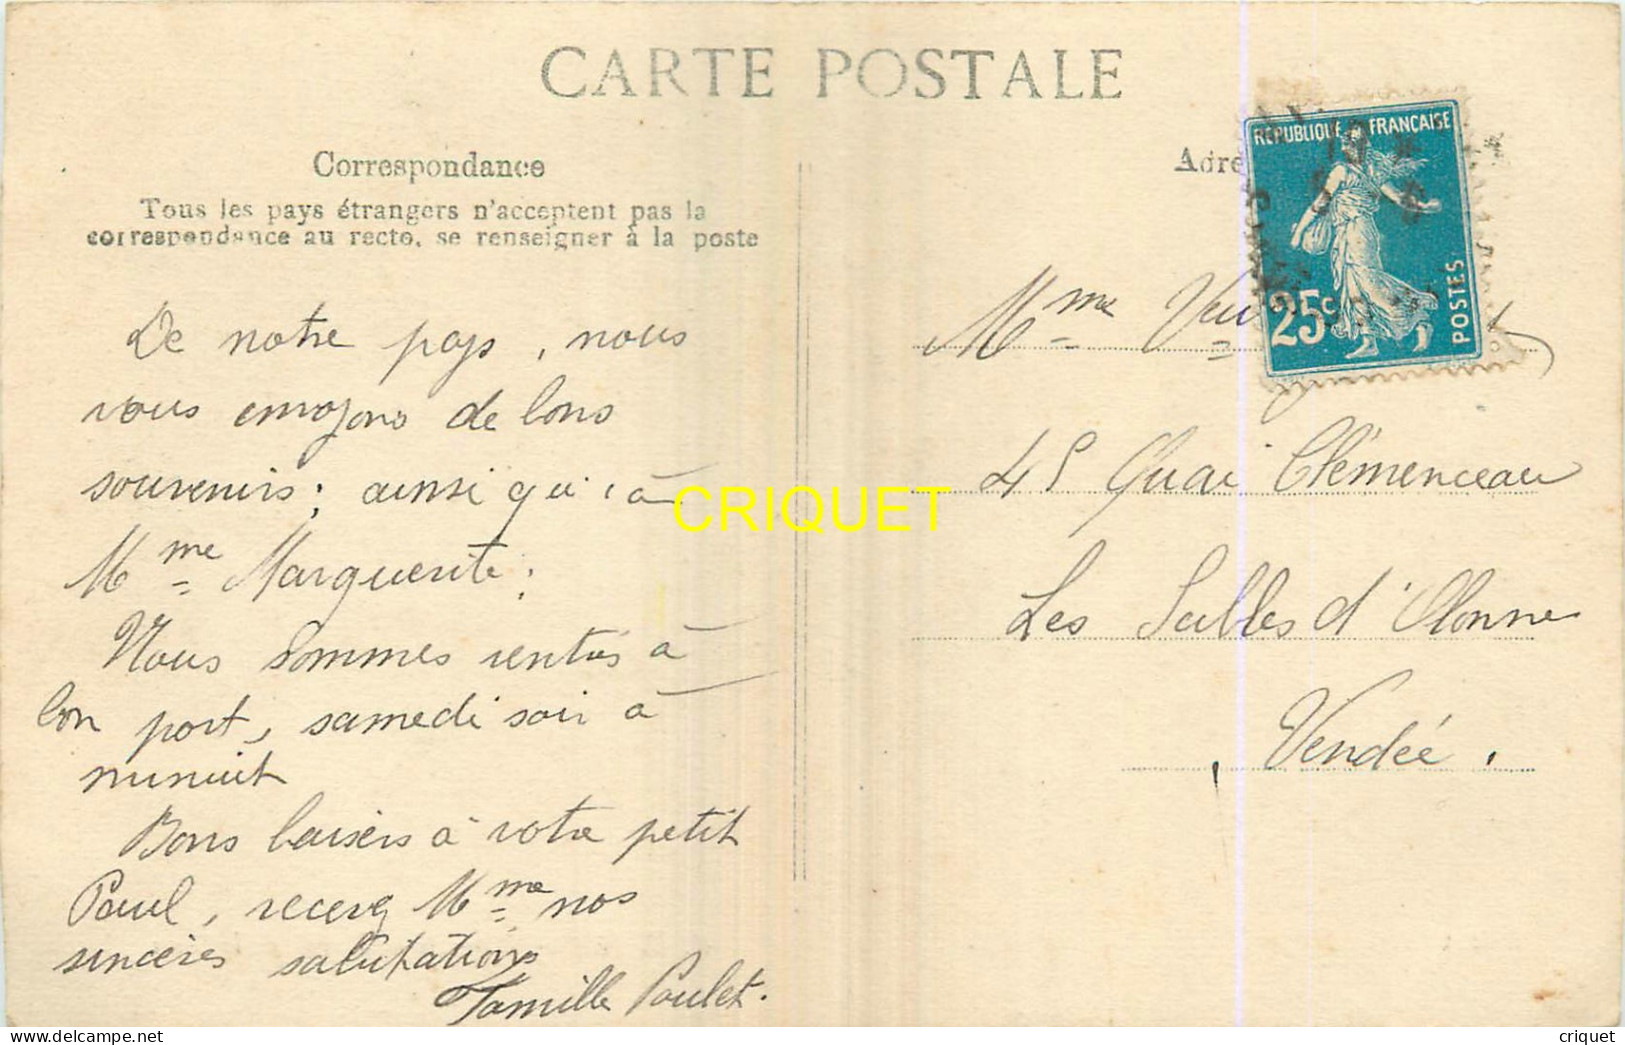 CARTE POSTALE
Correspondance
Tous les pays étrangers n'acceptent pas la
correspondance au recto, se renseigner à la poste
De notre pays, nous
vous envoyons de bons
souvenirs; ainsi qu'à
Mme Marguerite;
Nous sommes rentrés à
bon port, samedi soir à
minuit
Bons baisers à votre petit
Paul, recevez Mme nos
sincères salutations
Famille Poulet.
RÉPUBLIQUE FRANÇAISE
25c POSTES
Mme
45 Quai Clémenceau
Les Sables d'Olonne
Vendée.
CRIQUET
criquet